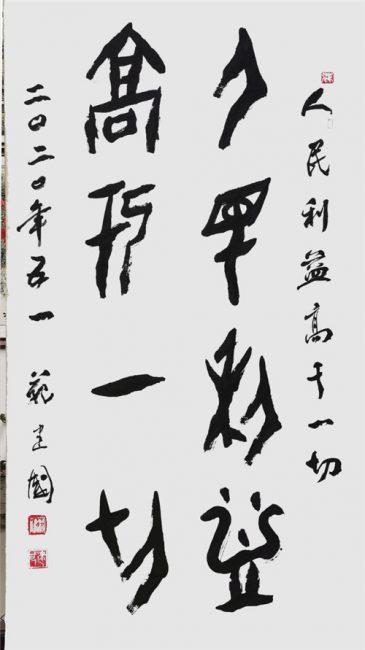 人民利益高于一切
人民利益
高于一切
二〇二〇年五一 范建國